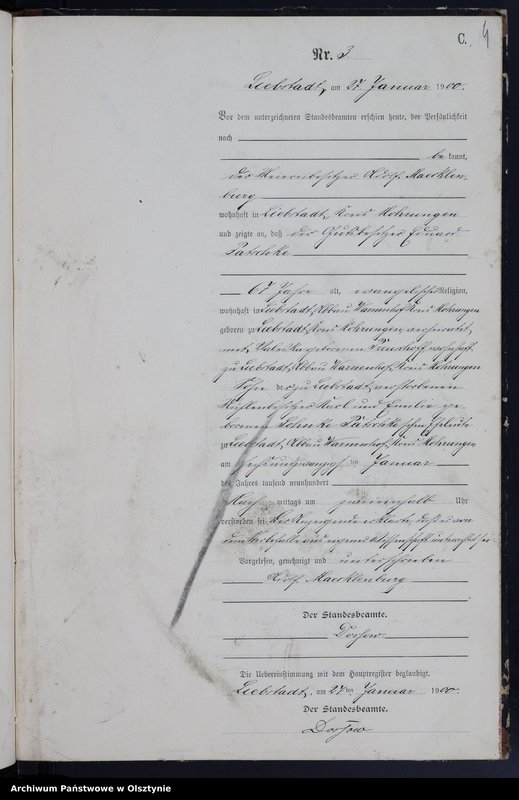 C. 4
Nr. 3
Liebstadt, am 27. Januar 1900.
Vor dem unterzeichneten Standesbeamten erschien heute, der Persönlichkeit
nach
be kannt,
der Meiereibesitzer Adolf Maecklen,
burg
wohnhaft in Liebstadt, Kreis Mohrungen
und zeigte an, daß der Gutsbesitzer Eduard
Patschke
67 Jahre alt, evangelischer Religion,
wohnhaft in Liebstadt, Abbau Warnenhof, Kreis Mohrungen
geboren zu Liebstadt, Kreis Mohrungen, verheiratet
mit geborenen wohnhaft
zu Liebstadt, Abbau Warnenhof, Kreis Mohrungen
Sohn der zu Liebstadt verstorbenen
Mühlenbesitzer Karl und Emilie ge-
borenen Patschke'schen Eheleute
zu Liebstadt, Abbau Warnenhof, Kreis Mohrungen
am sechsundzwanzigsten Januar
des Jahres tausend neunhundert
Nach mittags um Uhr
verstorben sei. Der Anzeigende erklärte, daß er von
dem Sterbefalle aus eigener Wissenschaft unterrichtet sei.
Vorgelesen, genehmigt und unterschrieben
Adolf Maecklenburg
Der Standesbeamte.
Dorsow
Die Uebereinstimmung mit dem Hauptregister beglaubigt.
Liebstadt, am 27ten Januar 1900.
Der Standesbeamte.
Dorsow
Archiwum Państwowe w Olsztynie